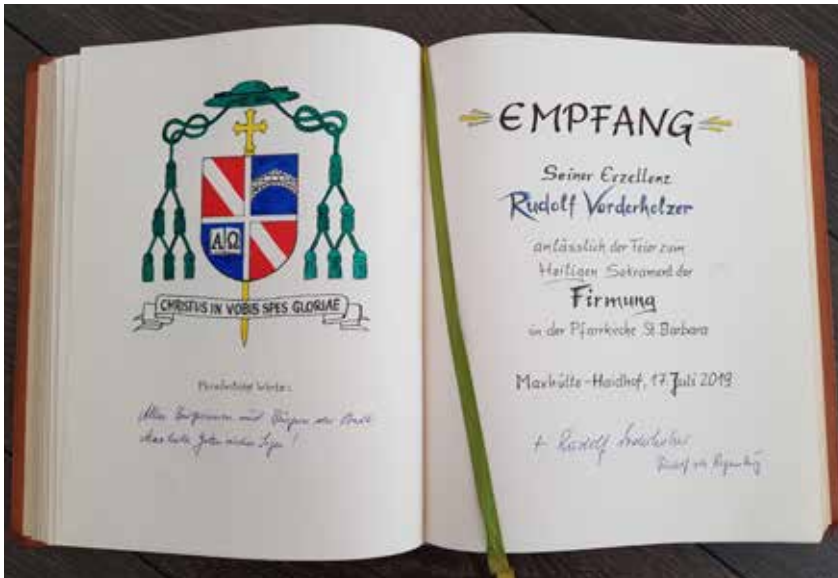 A Ω
CHRISTUS IN VOBIS SPES GLORIAE
Persönliche Worte:
Allen Bürgerinnen und Bürgern der Stadt
Maxhütte Gottes reichen Segen!
EMPFANG
Seiner Exzellenz
Rudolf Voderholzer
anlässlich der Feier zum
Heiligen Sakrament der
Firmung
in der Pfarrkirche St. Barbara
Maxhütte-Haidhof, 17. Juli 2019
+ Rudolf Voderholzer
Bischof von Regensburg